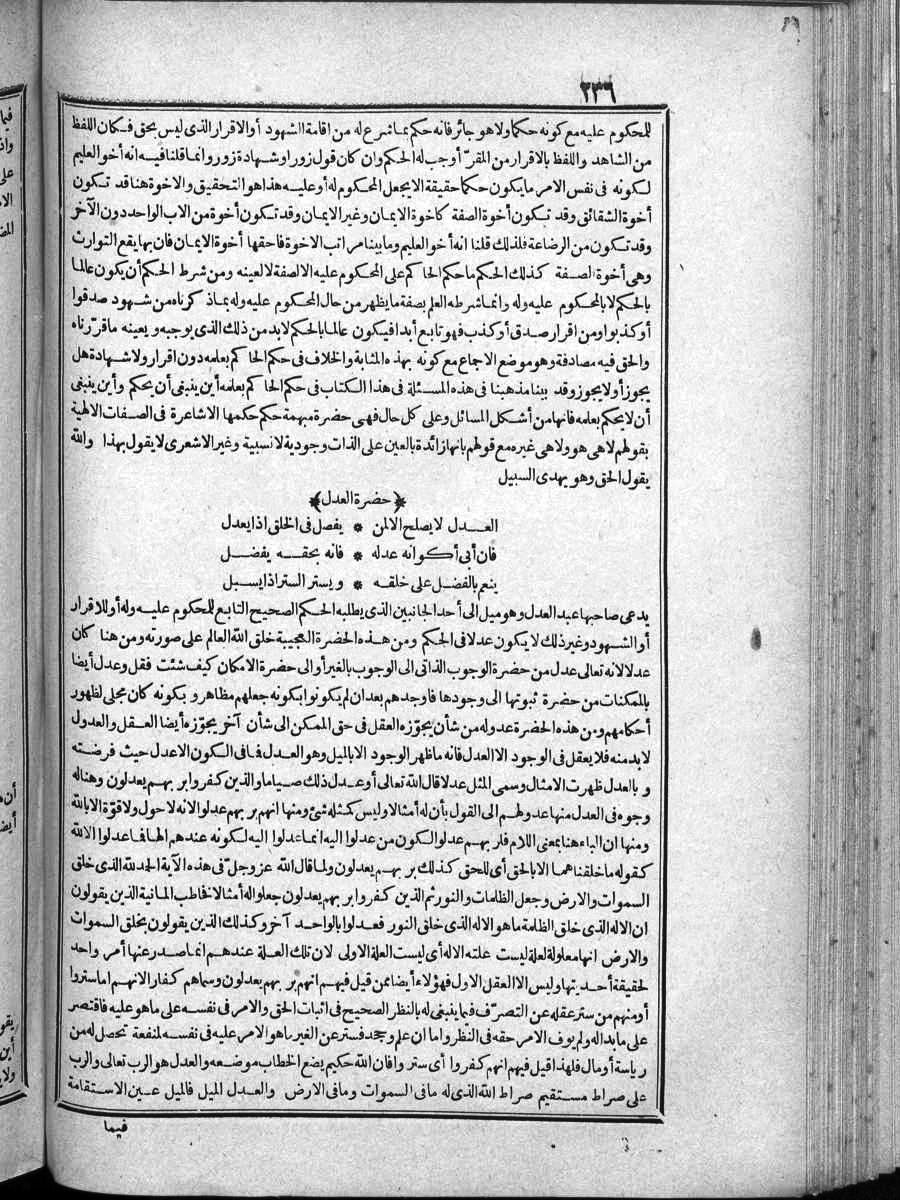 ٢٣٦
للمحكوم عليه مع كونه حكما ولا هو جائر فانه حكم بما شرع له من اقامة الشهود أو الاقرار الذى ليس بحق فكان اللفظ
من الشاهد واللفظ بالاقرار من المقرّ أوجب له الحكم وان كان قول زور أو شهادة زور وانما قلنا فيه انه أخو العليم
لكونه فى نفس الامر ما يكون حكما حقيقة الا بجعل المحكوم له أو عليه هذا هو التحقيق والاخوة هنا قد تكون
أخوة الشقائق وقد تكون أخوة الصفة كاخوة الايمان وغير الايمان وقد تكون أخوة من الاب الواحد دون الآخر
وقد تكون من الرضاعة فلذلك قلنا انه أخو العليم وما بينا مراتب الاخوة فاحقها أخوة الايمان فان بها يقع التوارث
وهى أخوة الصفة كذلك الحكم ما حكم الحاكم على المحكوم عليه الا لصفة لا لعينه ومن شرط الحكم أن يكون عالما
بالحكم لا بالمحكوم عليه وله وانما شرطه العلم بصفة ما يظهر من حال المحكوم عليه وله بما ذكرناه من شهود صدقوا
أو كذبوا ومن اقرار صدق أو كذب فهو تابع أبدا فيكون عالما بالحكم لا بد من ذلك الذى يوجبه ويعينه ما قرّرناه
والحق فيه مصادفة وهو موضع الاجماع مع كونه بهذه المثابة والخلاف فى حكم الحاكم بعلمه دون اقرار ولا شهادة هل
يجوز أو لا يجوز وقد بينا مذهبنا فى هذه المسئلة فى هذا الكتاب فى حكم الحاكم بعلمه أين ينبغى أن يحكم وأين ينبغى
أن لا يحكم بعلمه فانها من أشكل المسائل وعلى كل حال فهى حضرة مبهمة حكم حكمها الاشاعرة فى الصفات الالهية
بقولهم لا هى هو ولا هى غيره مع قولهم بانها زائدة بالعين على الذات وجودية لا نسبية وغير الاشعرى لا يقول بهذا والله
يقول الحق وهو يهدى السبيل
﴿حضرة العدل﴾
العدل لا يصلح الا لمن * يفصل فى الخلق اذا يعدل
فان أبى أكوانه عدله * فانه بحقه يفضل
ينعم بالفضل على خلقه * ويستر الستر اذا يسبل
يدعى صاحبها عبد العدل وهو ميل الى أحد الجانبين الذى يطلبه الحكم الصحيح التابع للمحكوم عليه وله أو للاقرار
أو الشهود وغير ذلك لا يكون عدلا فى الحكم ومن هذه الحضرة العجيبة خلق الله العالم على صورته ومن هنا كان
عدلا لانه تعالى عدل من حضرة الوجوب الذاتى الى الوجوب بالغير أو الى حضرة الامكان كيف شئت فقل وعدل أيضا
بالممكنات من حضرة ثبوتها الى وجودها فاوجدهم بعد ان لم يكونوا بكونه جعلهم مظاهر وبكونه كان مجلى لظهور
أحكامهم ومن هذه الحضرة عدوله من شأن يجوّزه العقل فى حق الممكن الى شأن آخر يجوّزه أيضا العقل والعدول
لا بد منه فلا يعقل فى الوجود الا العدل فانه ما ظهر الوجود الا بالميل وهو العدل فما فى الكون الا عدل حيث فرضته
وبالعدل ظهرت الامثال وسمى المثل عدلا قال الله تعالى أو عدل ذلك صياما والذين كفروا بربهم يعدلون وهنا له
وجوه فى العدل منها عدولهم الى القول بأن له أمثالا وليس كمثله شئ ومنها انهم بربهم عدلوا لانه لا حول ولا قوة الا بالله
ومنها ان الباء هنا بمعنى اللام فلربهم عدلوا لكون من عدلوا اليه انما عدلوا اليه لكونه عندهم الها فما عدلوا الا لله
كقوله ما خلقناهما الا بالحق أى للحق كذلك بربهم يعدلون ولما قال الله عز وجلّ فى هذه الآية الحمد لله الذى خلق
السموات والارض وجعل الظلمات والنور ثم الذين كفروا بربهم يعدلون جعلوا له أمثالا فخاطب المانية الذين يقولون
ان الاله الذى خلق الظلمة ما هو الاله الذى خلق النور فعدلوا بالواحد آخر وكذلك الذين يقولون بخلق السموات
والارض انها معلولة لعلة ليست علته الاله أى ليست العلة الاولى لان تلك العلة عندهم انما صدر عنها أمر واحد
لحقيقة أحديتها وليس الا العقل الاول فهؤلاء أيضا ممن قيل فيهم انهم بربهم يعدلون وسماهم كفار الانهم اما ستروا
أو منهم من ستر عقله عن التصرّف فيما ينبغى له بالنظر الصحيح فى اثبات الحق والامر فى نفسه على ما هو عليه فاقتصر
على ما بدا له ولم يوف الامر حقه فى النظر واما ان علم وجحد فستر عن الغير ما هو الامر عليه فى نفسه لمنفعة تحصل له من
رياسة أو مال فلهذا قيل فيهم انهم كفروا أى ستروا فان الله حكيم يضع الخطاب موضعه والعدل هو الرب تعالى والرب
على صراط مستقيم صراط الله الذى له ما فى السموات وما فى الارض والعدل الميل فالميل عين الاستقامة
فيما